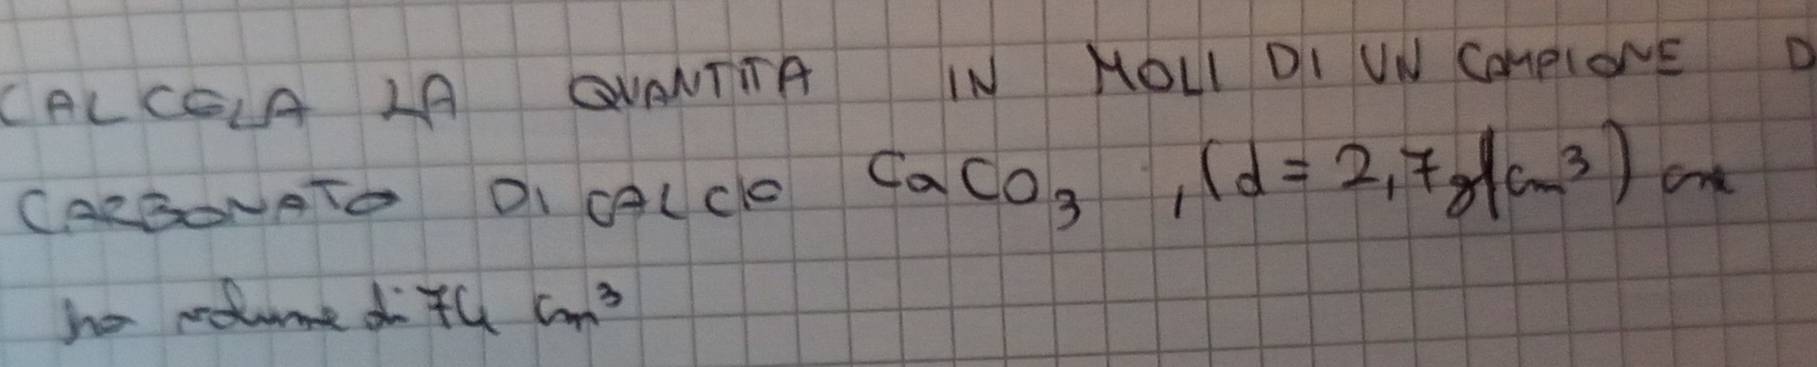 CALCOLA LA QUANTITA IN MOLI DI UN CAMPIONE D
CARBONATO DI CALCIO CaCO3, (d = 2,7 g/cm³) che
ha volume di 74 cm³